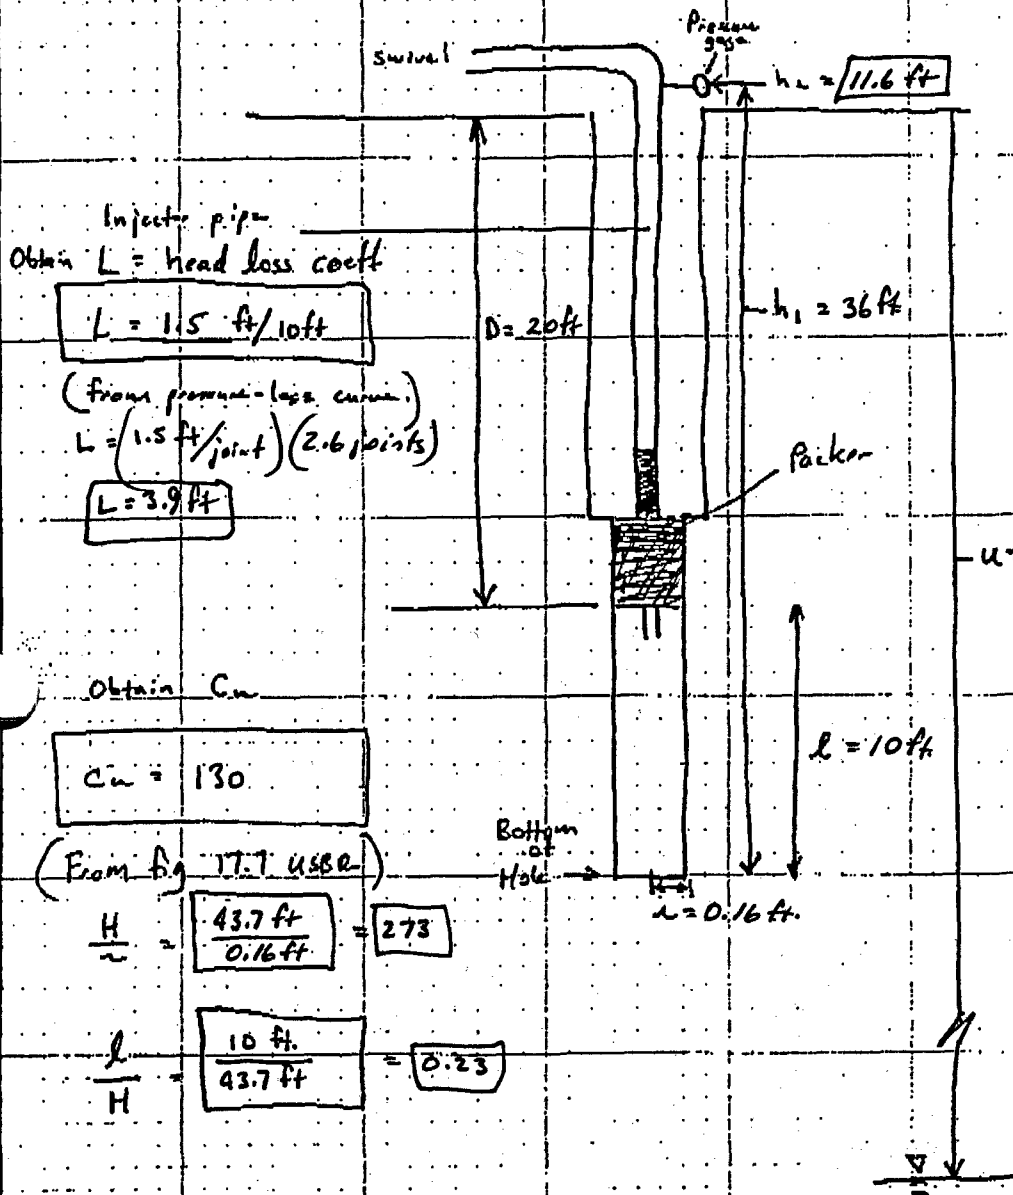 Pressure
gage
Swivel
h₂ = 11.6 ft
Injector pipe
Obtain L = head loss coeff
L = 1.5 ft/10ft
D = 20ft
h₁ = 36 ft
(from pressure-loss curve.)
L = (1.5 ft/joint)(2.6 joints)
L = 3.9 ft
Packer
u =
Obtain Cu
Cu = 130
l = 10 ft.
(From fig 17.7 USBR)
Bottom
of
Hole
r = 0.16 ft.
H/r = 43.7 ft / 0.16 ft = 273
l/H = 10 ft. / 43.7 ft = 0.23